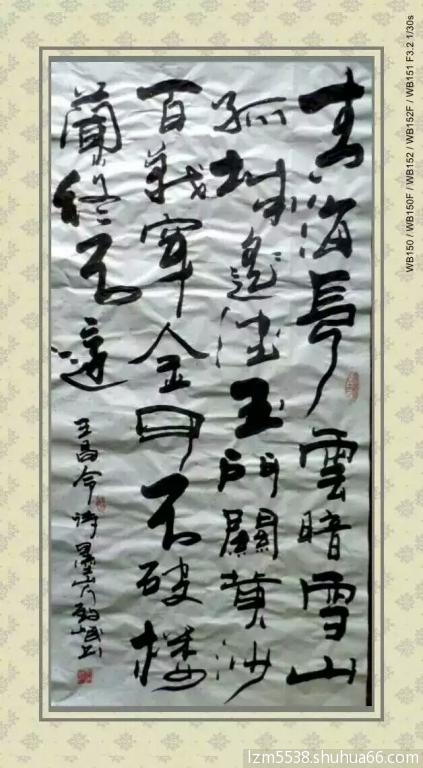 青海長雲暗雪山
孤城遙望玉門關黃沙
百戰穿金甲不破樓
蘭終不還
王昌令詩
WB150 / WB150F / WB152 / WB152F / WB151 F3.2 1/30s
lzm5538.shuhua66.com